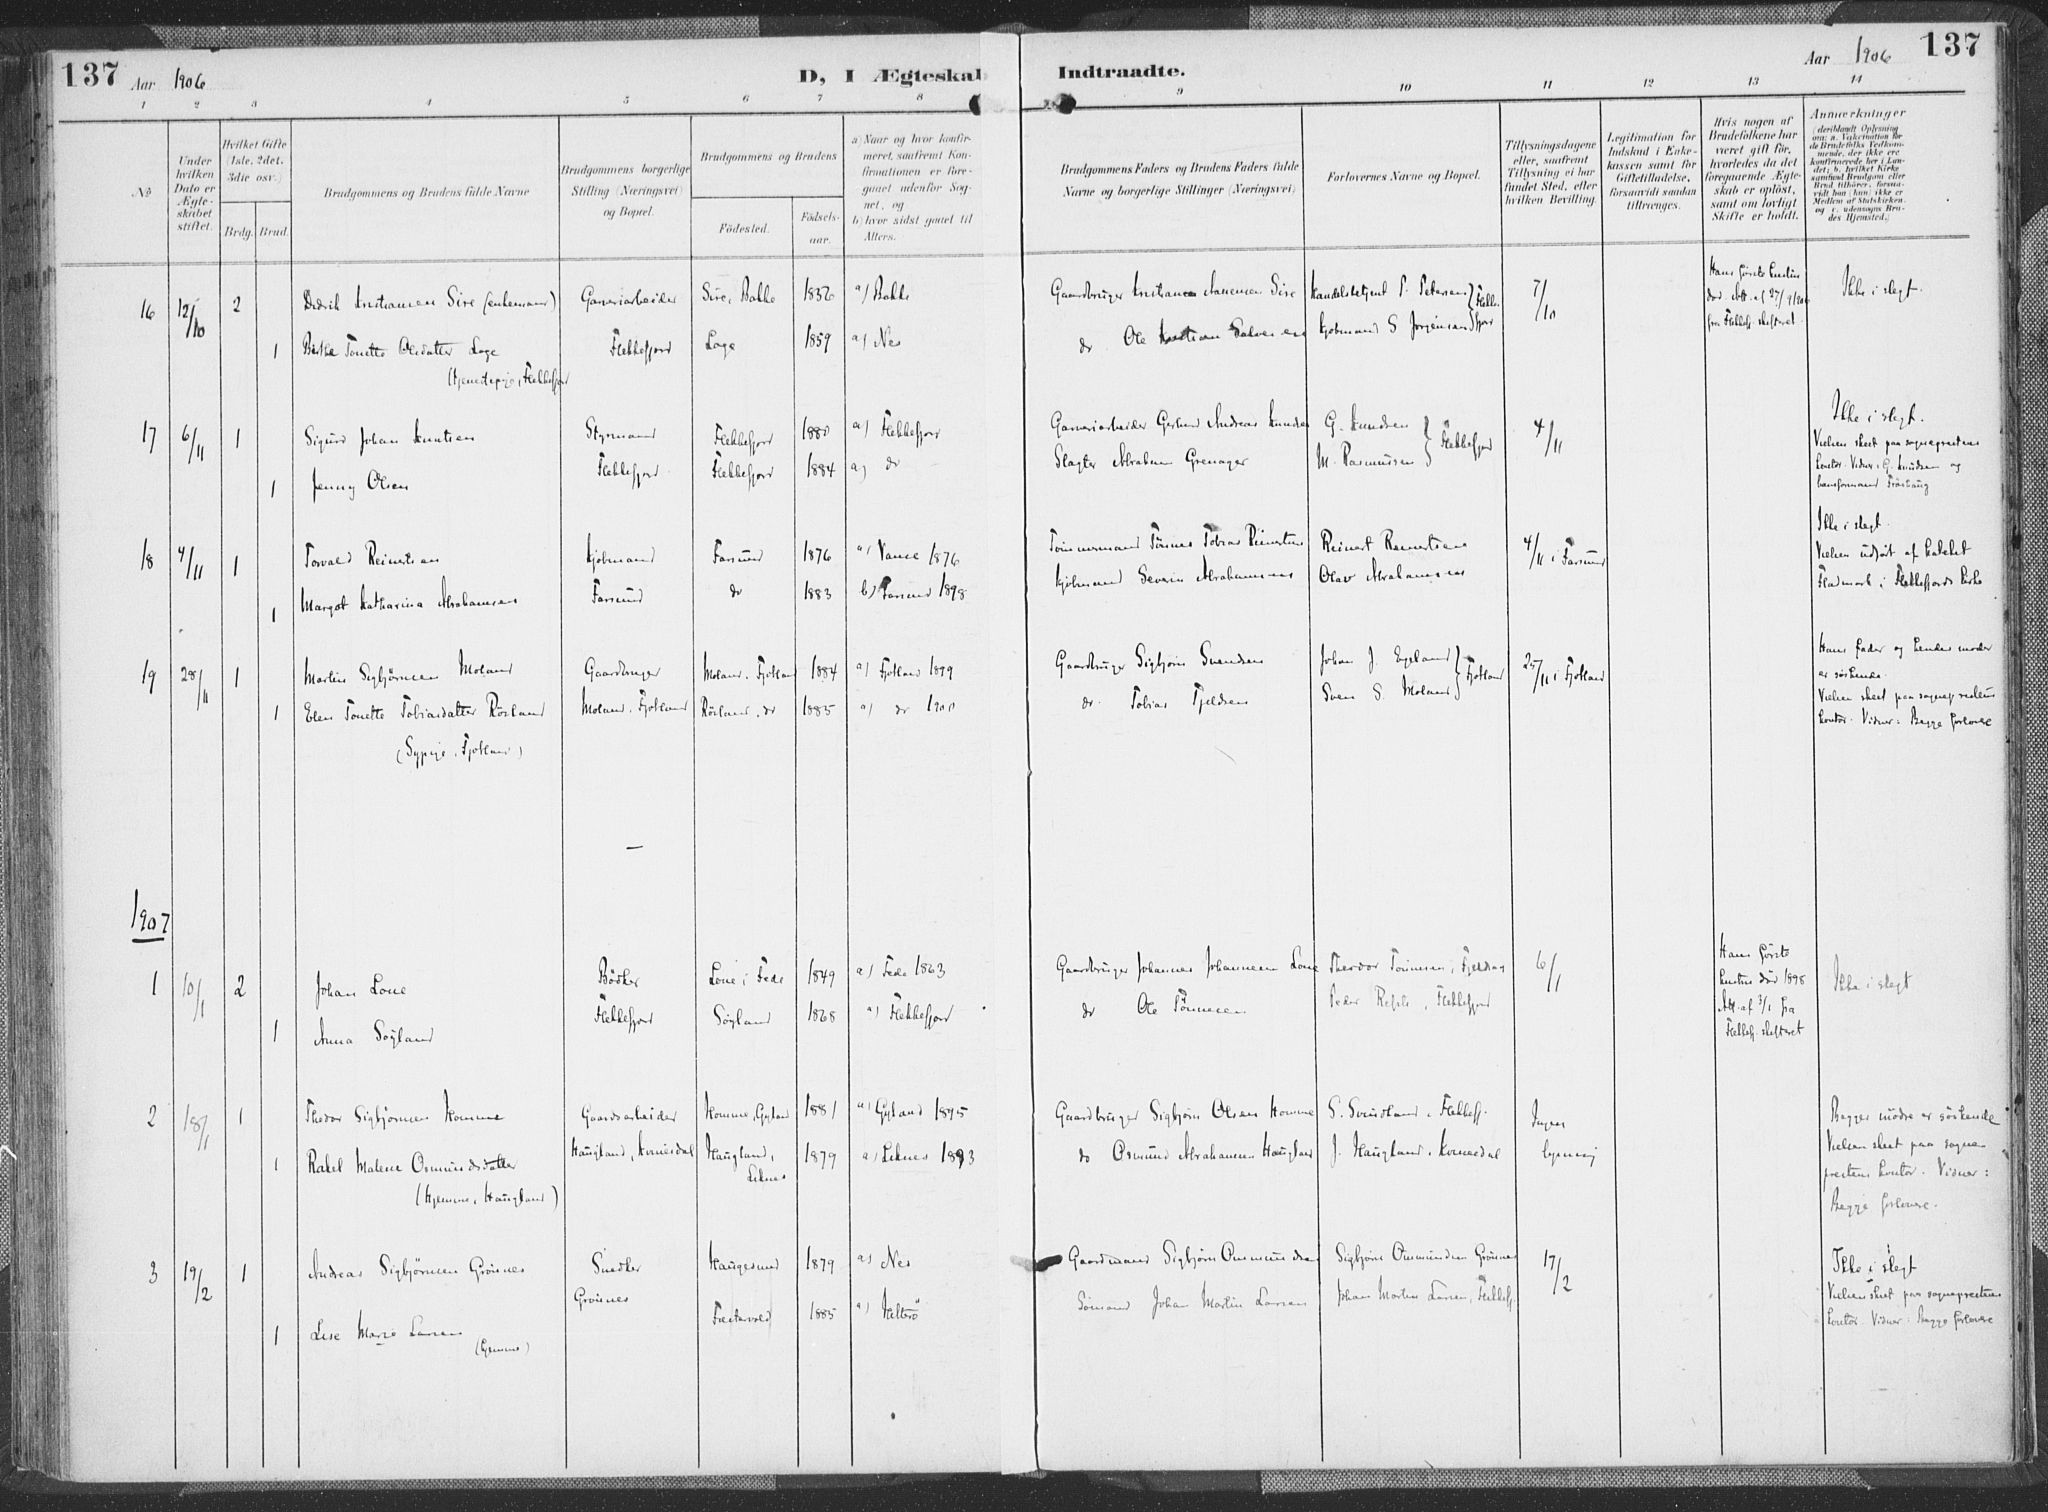 137 Aar 1906 D, I Ægteskab Indtraadte. Aar 1906 137
1 2 3 4 5 6 7 8 9 10 11 12 13 14
No
Under hvilken Dato er Ægteskabet stiftet.
Hvilket Gifte (1ste, 2det, 3die osv.)
Brdg. Brud.
Brudgommens og Brudens fulde Navne
Brudgommens borgerlige Stilling (Næringsvei) og Bopæl.
Brudgommens og Brudens
Fødested. Fødselsaar.
a) Naar og hvor konfirmeret, saafremt Konfirmationen er foregaaet udenfor Sognet, og
b) hvor sidst gaaet til Alters.
Brudgommens Faders og Brudens Faders fulde Navne og borgerlige Stillinger (Næringsvei)
Forlovernes Navne og Bopæl.
Tillysningsdagene eller, saafremt Tillysning ei har fundet Sted, efter hvilken Bevilling.
Legitimation for Indskud i Enkekassen samt for Giftetilladelse, forsaavidt saadan tiltrænges.
Hvis nogen af Brudefolkene har været gift før, hvorledes da det foregaaende Ægteskab er opløst, samt om lovligt Skifte er holdt.
Anmærkninger (deriblandt Oplysning om: a. Vakcination for de Brudefolks Vedkommende, der ikke ere konfirmerede her i Landet; b. hvilket Kirkesamfund Brudgom eller Brud tilhører, forsaavidt han (hun) ikke er Medlem af Statskirken, og c. udensogns Brudes Hjemsted.)
16 12/10 2 Didrik Kristiansen Sire (enkemand) Garveriarbeider Sire, Bakke 1836 a) Bakke Gaardbruger Kristian Aanensen Sire Handelsbetjent P. Petersen 7/10 Ikke i slegt.
Hans første hustru død. Att. af 27/9 1906 fra Flekkefj. skifteret.
1 Berthe Tonette Olesdatter Loge Flekkefjord Loge 1859 a) Nes do Ole Kristian Salvesen Kjøbmand S. Jørgensen } Flekkefjord
(Tjenestepige, Flekkefjord
17 6/11 1 Sigurd Johan Knutsen Styrmand Flekkefjord 1880 a) Flekkefjord Garveriarbeider Gerhard Andreas Knudsen G. Knudsen 4/11 Ikke i slegt.
1 Jenny Olsen Flekkefjord Flekkefjord 1884 a) do Slagter Abraham Grenager M. Rasmussen } Flekkefjord
Vielsen skeet paa sogneprestens kontor. Vidner: G. Knudsen og
18 4/11 1 Torvald Reinertsen Kjøbmand Farsund 1876 a) Vanse 1876 Tømmermand Tønnes Tobias Reinertsen Reinert Reinertsen 4/11 i Farsund Ikke i slegt.
1 Margot Katharina Abrahamsen Farsund do 1883 b) Farsund 1898 Kjøbmand Severin Abrahamsen Olav Abrahamsen
Vielsen udført af kateket Fladmark i Flekkefjords kirke
19 28/11 1 Martin Sigbjørnsen Moland Gaardbruger Moland, Fjotland 1884 a) Fjotland 1899 Gaardbruger Sigbjørn Svendsen Johan J. Egeland 25/11 i Fjotland
1 Elen Tonette Tobiasdatter Røiland Moland, Fjotland Røiland, do 1885 a) do 1900 do Tobias Fjeldsen Sven S. Moland } Fjotland
(Sypige, Fjotland)
Hans fader og hendes moder er søskende.
Vielsen skeet paa sogneprestens kontor. Vidner: Begge forlovere
1907
1 10/1 2 Johan Loue Bødker Loue i Fede 1849 a) Fede 1863 Gaardbruger Johannes Johannesen Loue Theodor Tønnesen, 6/1 Ikke i slegt
1 Anna Søyland Flekkefjord Søyland 1868 a) Flekkefjord do Ole Tønnesen Peder Refsti, Flekkefjord
Hans første hustru død 1898 Att. af 3/1 fra Flekkefj. skifteret
2 18/1 1 Theodor Sigbjørnsen Homme Gaardsarbeider Homme, Gyland 1881 a) Gyland 1895 Gaardbruger Sigbjørn Olsen Homme S. Svindland, Flekkefj. Ingen lysning
1 Rakel Malene Osmundsdatter Haugland, Kvinesdal Haugland, Liknes 1879 a) Liknes 1893 do Osmund Abrahamsen Haugland J. Haugland, Kvinesdal
(Hjemme, Haugland)
Begges mødre er søskende
Vielsen skeet paa sogneprestens kontor. Vidner: Begge forlovere.
3 19/2 1 Andreas Sigbjørnsen Grøsnes Snedker Haugesund 1879 a) Nes Gaardmand Sigbjørn Ommundsen Sigbjørn Ommundsen Grøsnes 17/2 Ikke i slegt
1 Lise Marie Larsen Grøsnes 1885 a) Hitterø Sømand Johan Martin Larsen Johan Martin Larsen, Flekkefj.
(hjemme)
Vielsen skeet paa sogneprestens kontor. Vidner: Begge forlovere